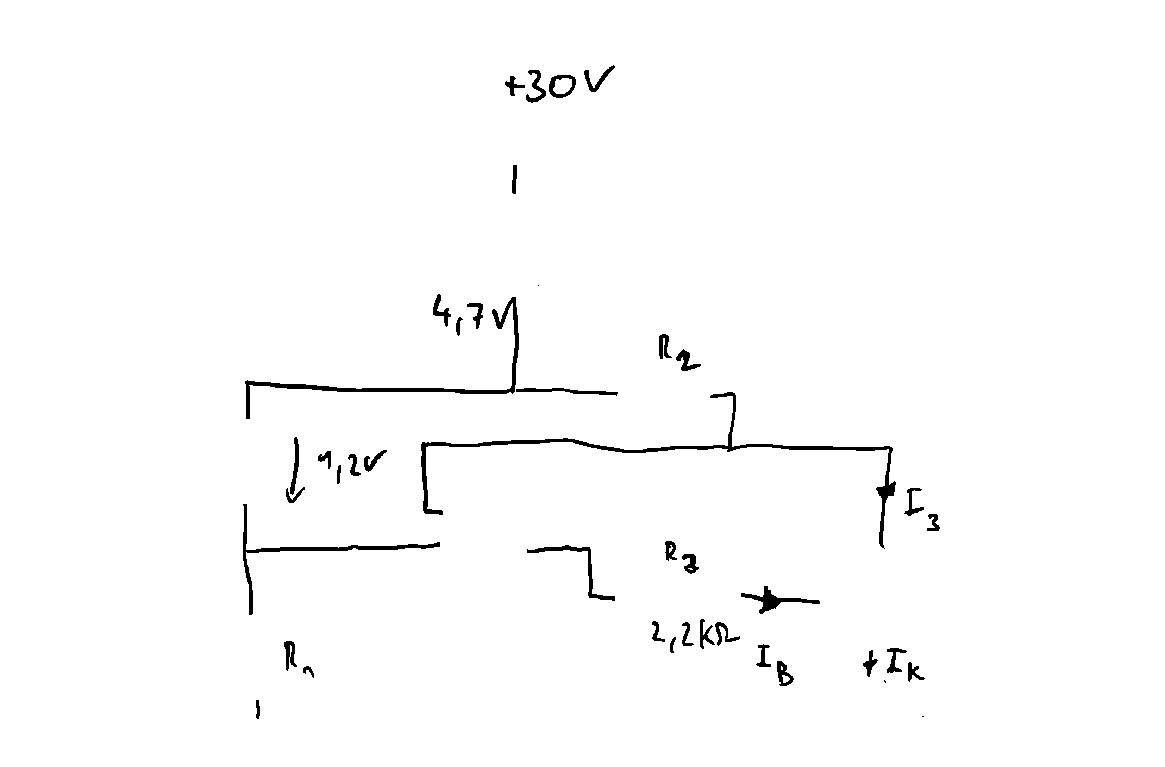 +30V
4,7V
R2
1,2V
I3
R3
2,2kΩ
IB
+IK
R1